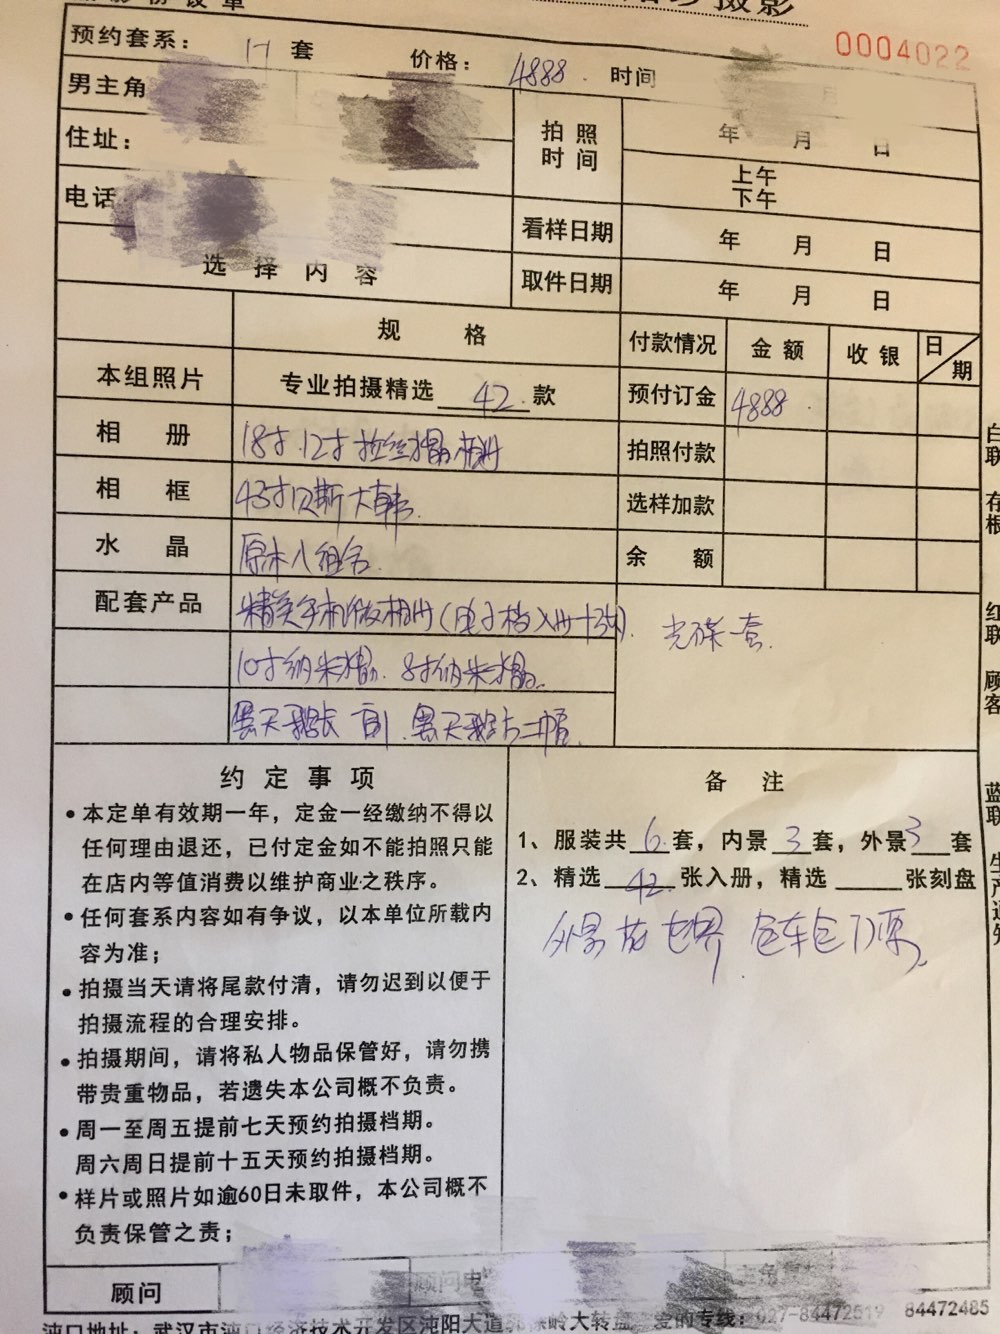 摄影
0004022
预约套系: 17 套 价格: 4888 时间
男主角 月
住址: 拍照时间 年 月 日
上午
下午
电话
看样日期 年 月 日
选择内容 取件日期 年 月 日
规格 付款情况 金额 收银 日期
本组照片 专业拍摄精选 42 款 预付订金 4888
相册 18寸.12寸拉丝水晶相册 拍照付款
相框 43寸贝斯大韩 选样加款
水晶 原木八组合 余额
配套产品 精美手机版相册(电子档入册十张). 光碟一套.
10寸纳米水晶. 8寸纳米水晶.
约定事项
• 本定单有效期一年，定金一经缴纳不得以
任何理由退还，已付定金如不能拍照只能
在店内等值消费以维护商业之秩序。
• 任何套系内容如有争议，以本单位所载内
容为准；
• 拍摄当天请将尾款付清，请勿迟到以便于
拍摄流程的合理安排。
• 拍摄期间，请将私人物品保管好，请勿携
带贵重物品，若遗失本公司概不负责。
• 周一至周五提前七天预约拍摄档期。
周六周日提前十五天预约拍摄档期。
• 样片或照片如逾60日未取件，本公司概不
负责保管之责；
备注
1、服装共 6 套，内景 3 套，外景 3 套
2、精选 42 张入册，精选 张刻盘
外景花世界 包车包门票
白联 存根
红联 顾客
蓝联 生产通知
顾问 顾问电
沌口地址: 武汉市沌口经济技术开发区沌阳大道郭徐岭大转盘 爱的专线: 027-84472519 84472485